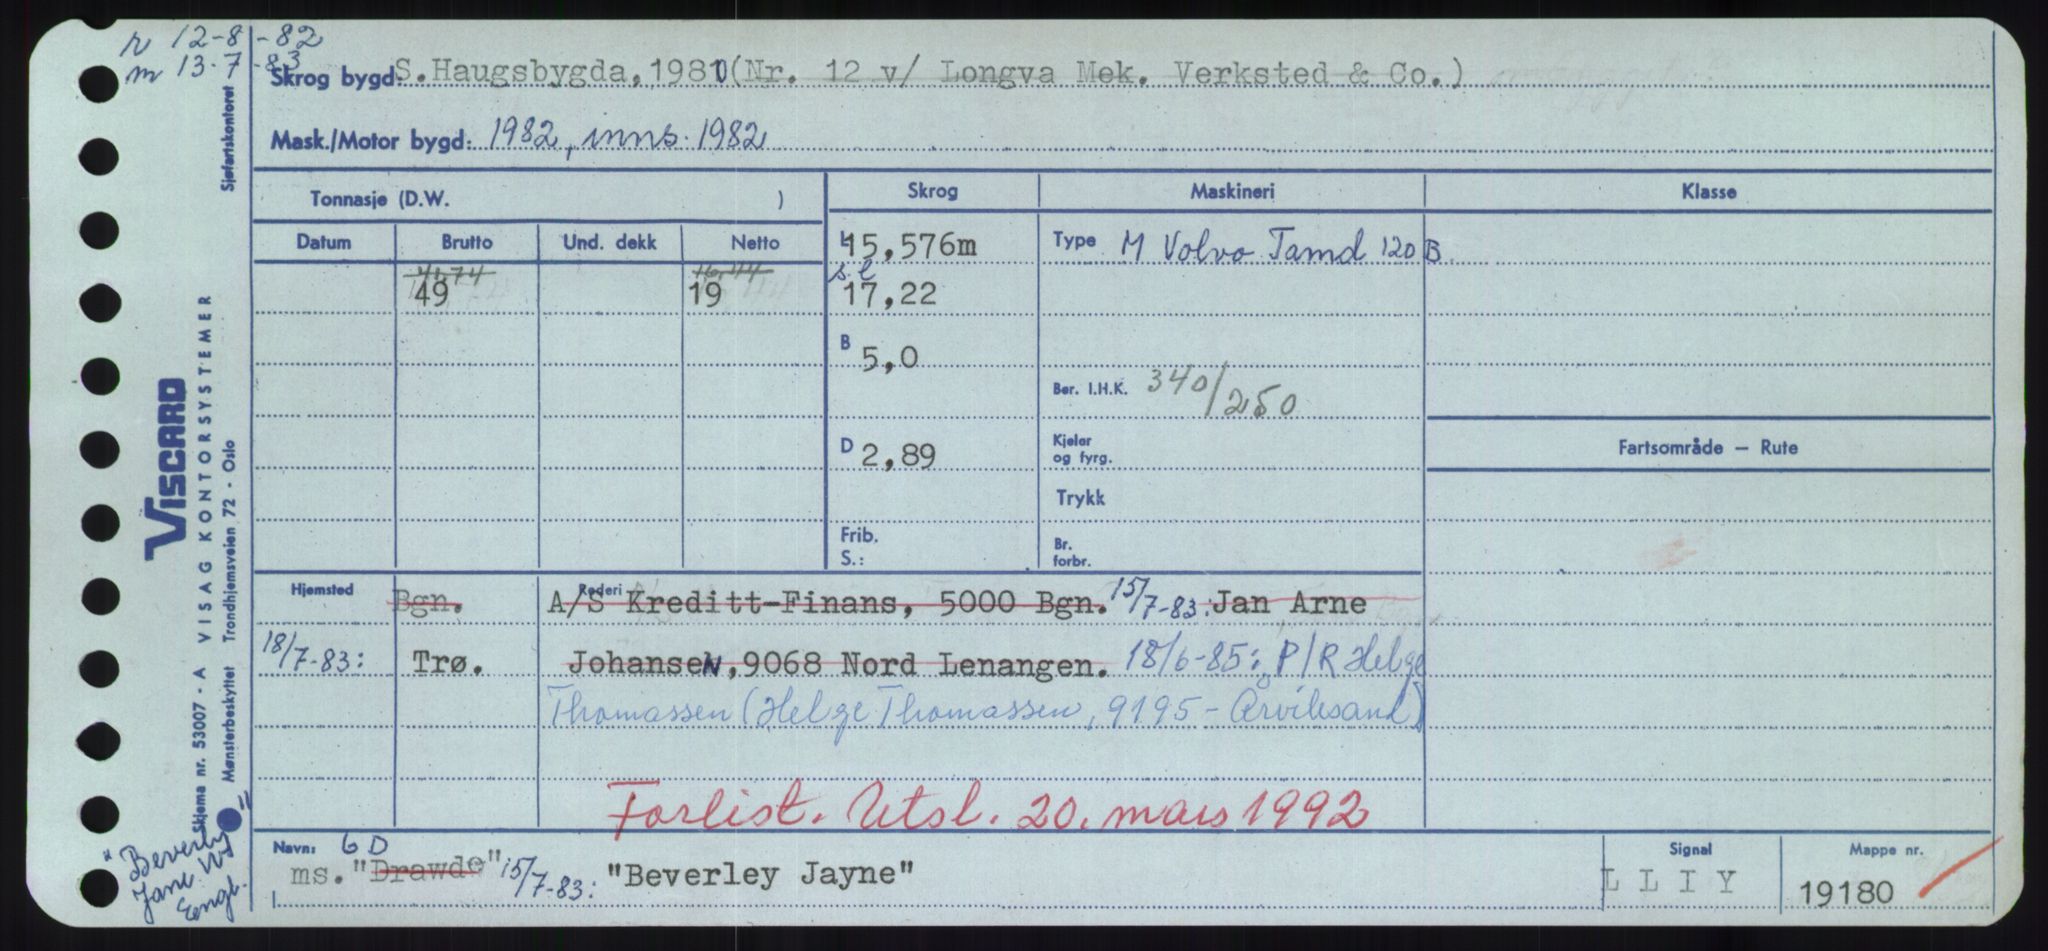 r 12-8-82
m 13.7-83
Skrog bygd: S.Haugsbygda, 1981 (Nr. 12 v/ Longva Mek. Verksted & Co.)
Mask./Motor bygd: 1982, inns. 1982
Tonnasje (D.W. )
Skrog
Maskineri
Klasse
Datum
Brutto
Und. dekk
Netto
L 15,576m
Type M Volvo Tamd 120 B
49
19
s.l
17,22
B 5,0
Ber. I.H.K. 340/250
D 2,89
Kjeler
og fyrg.
Fartsområde — Rute
Trykk
Frib.
S.:
Br.
forbr.
Hjemsted
Bgn.
Rederi
A/S Kreditt-Finans, 5000 Bgn. 15/7-83: Jan Arne
18/7-83: Trø.
Johansen, 9068 Nord Lenangen. 18/6-85: P/R Helge
Thomassen (Helge Thomassen, 9195 - Årviksand)
Forlist. Utsl. 20. mars 1992
Navn: 6 D
ms. "Drawde" 15/7-83: "Beverley Jayne"
Signal
L L I Y
Mappe nr.
19180
Sjøfartskontoret
VISCARD
VISAG KONTORSYSTEMER
Skjema nr. 53007 - A
Mønsterbeskyttet Trondhjemsveien 72 - Oslo
"Beverley
Jane W"
Engl.